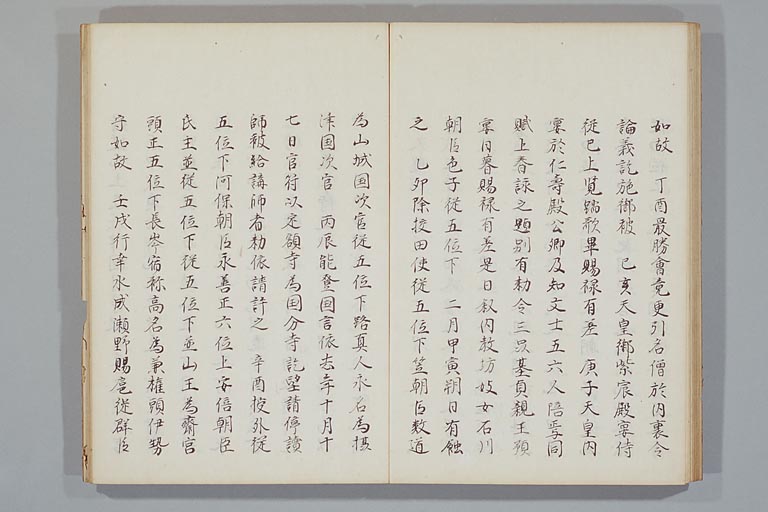 如故 丁酉最勝會竟更引名僧於内裏令
論義訖施御被 己亥天皇御紫宸殿宴侍
従已上覧踏歌畢賜禄有差 庚子天皇内
宴於仁壽殿公卿及知文士五六人陪焉同
賦上春詠之題別有勅令三品基貞親王預
宴日暮賜禄有差是日叙内教坊妓女石川
朝臣色子従五位下 二月甲寅朔日有蝕
之 乙卯除授田使従五位下笠朝臣数道
為山城国次官従五位下路真人永名為摂
津国次官 丙辰能登国言依去年十月十
七日官符以定額寺為国分寺訖望請停讀
師被給講師者勅依請許之 辛酉授外従
五位下阿保朝臣永善正六位上安倍朝臣
氏主並従五位下従五位下並山王為斎宮
頭正五位下長岑宿祢高名為兼権頭伊勢
守如故 壬戌行幸水成瀬野賜扈従群臣